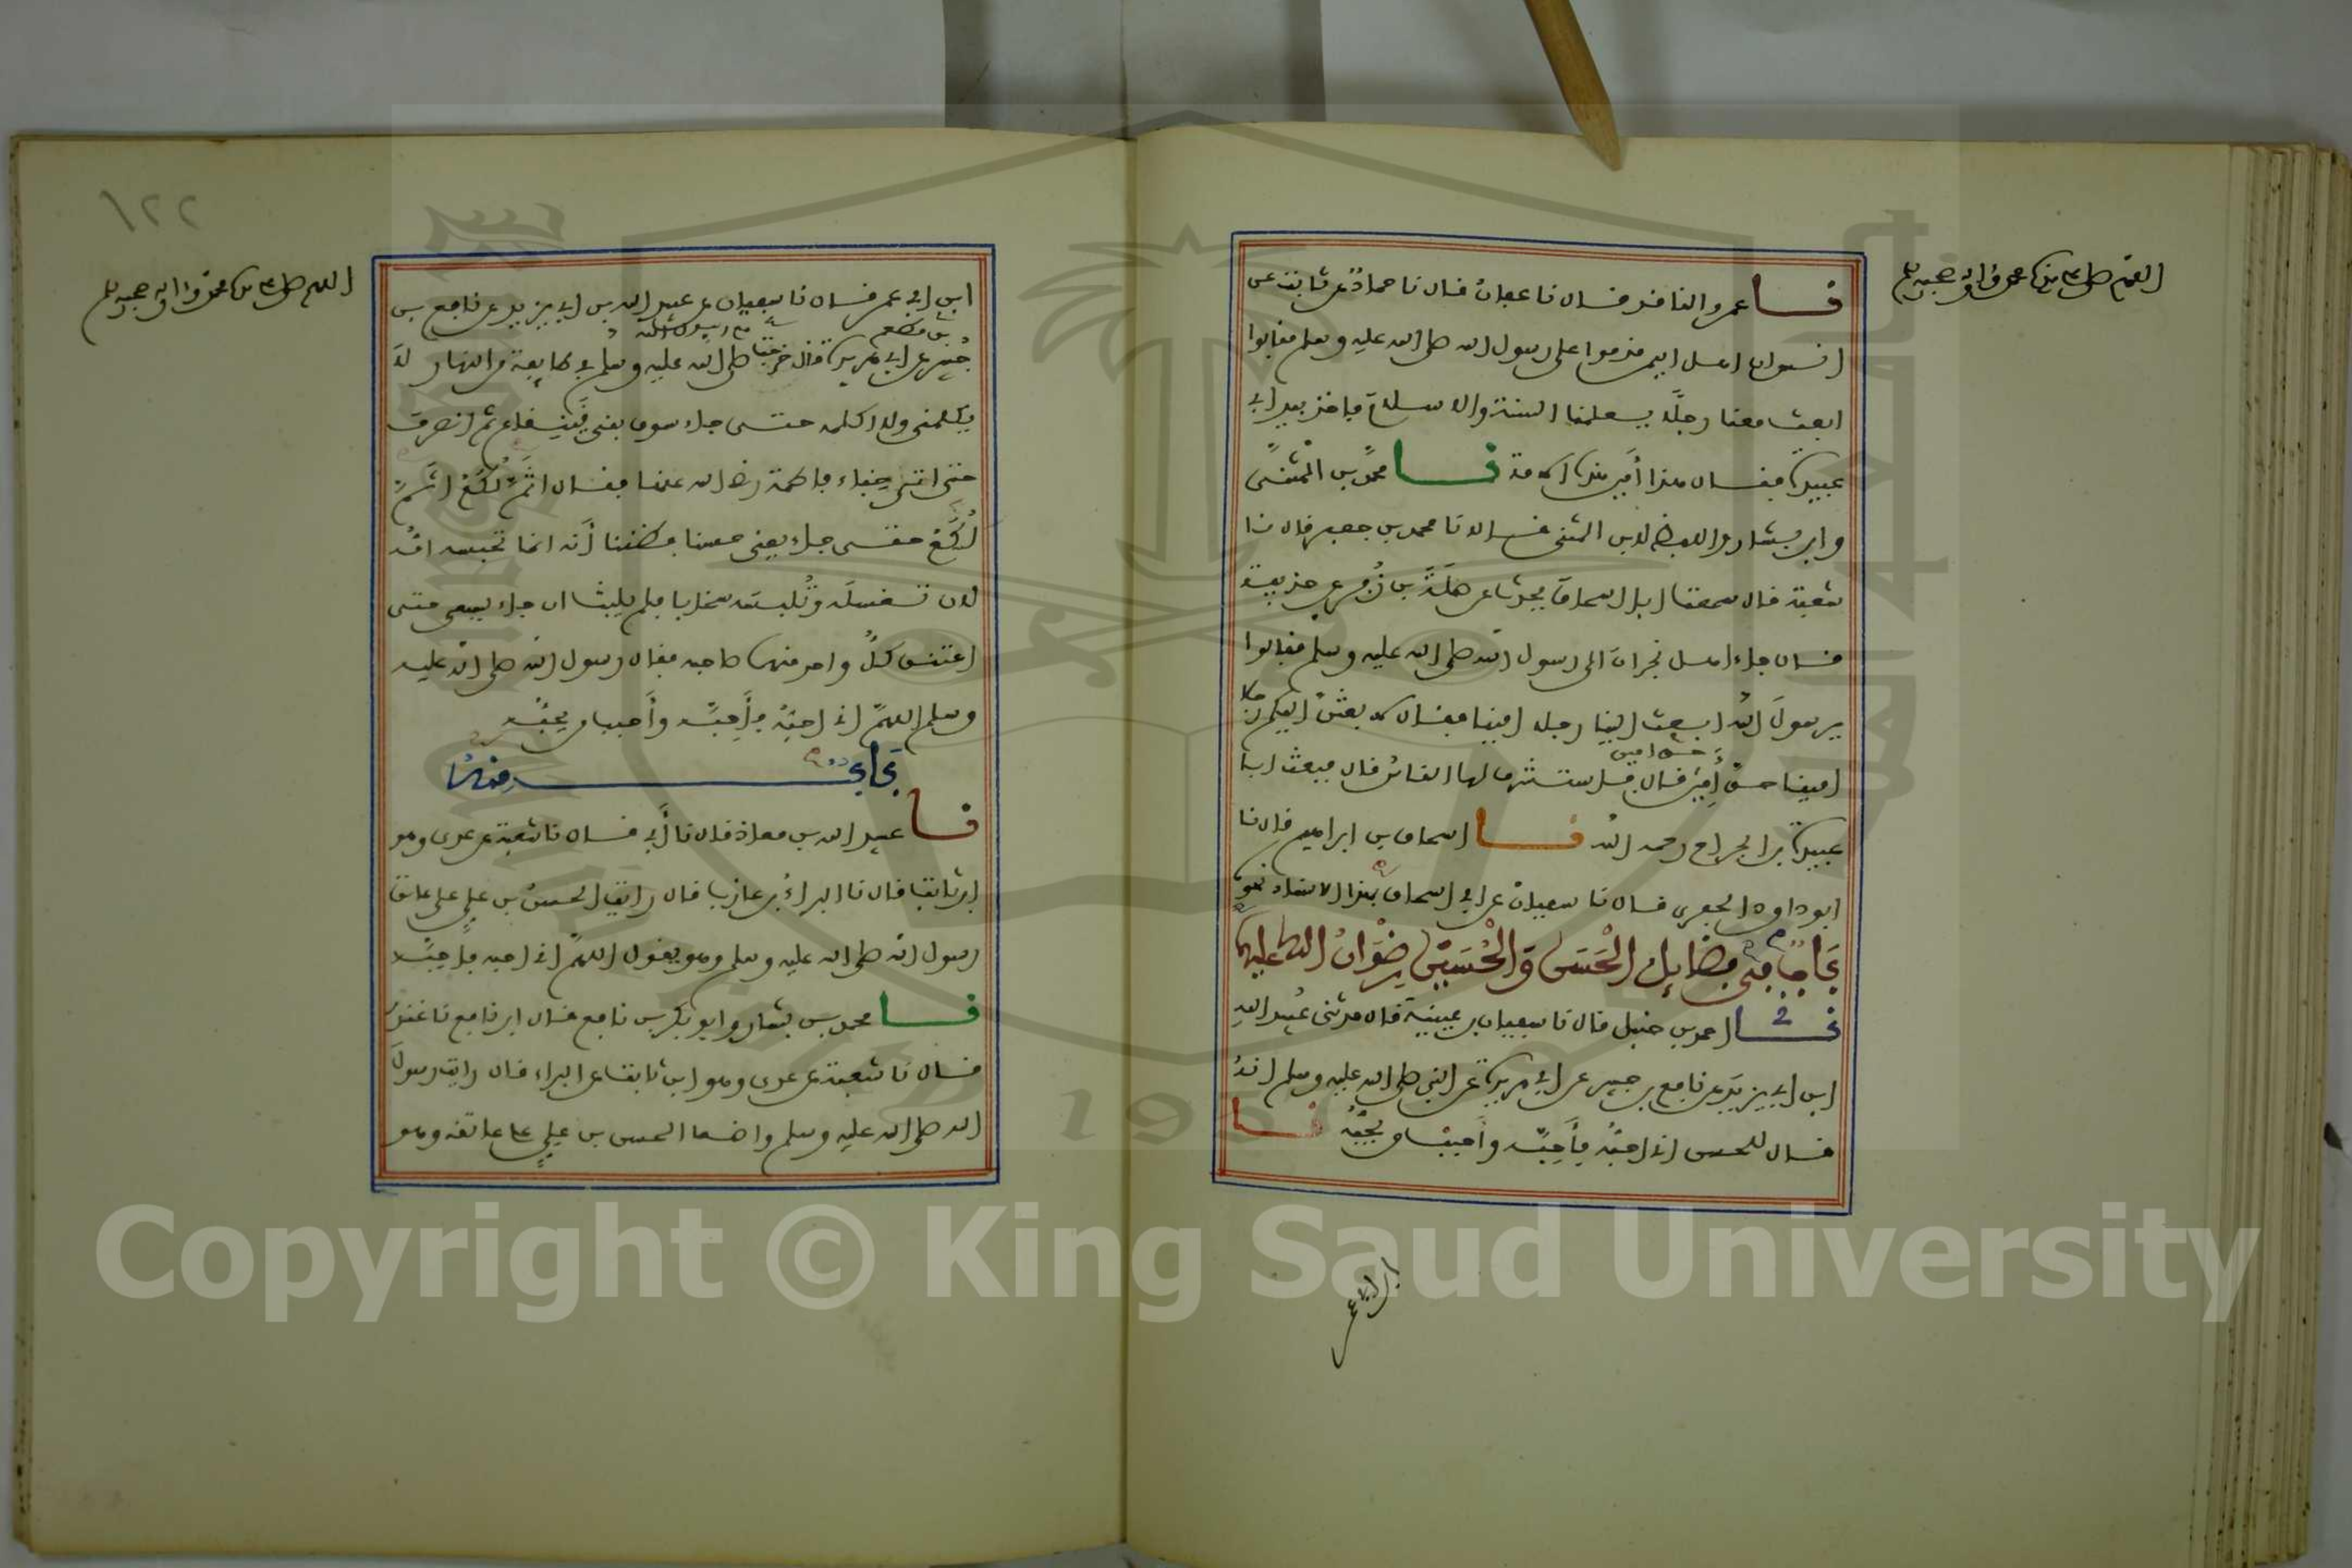 اللهم صل على سيدنا محمد وآله وصحبه وسلم
نا عمرو الناقد قال نا عفان قال نا حماد عن ثابت عن
انس ان اهل اليمن قدموا على رسول الله صلى الله عليه وسلم فقالوا
ابعث معنا رجلا يعلمنا السنة والاسلام فاخذ بيد ابي
عبيدة فقال هذا أمين هذه الامة نا محمد بن المثنى
وابن بشار واللفظ لابن المثنى قالا نا محمد بن جعفر قال نا
شعبة قال سمعت ابا اسحاق يحدث عن صلة بن زفر عن حذيفة
قال جاء اهل نجران الى رسول الله صلى الله عليه وسلم فقالوا
يرسول الله ابعث الينا رجلا امينا فقال لابعثن اليكم رجلا
امينا حق أمين حق امين قال فاستشرف لها الناس قال فبعث ابا
عبيدة بن الجراح رحمه الله نا اسحاق بن ابراهيم قال نا
ابو داود الحفري قال نا سفيان عن ابي اسحاق بهذا الاسناد نحوه
باب من فضايل الحسن والحسين رضوان الله عليهما
نا احمد بن حنبل قال نا سفيان بن عيينة قال حدثني عبيد الله
ابن ابي يزيد عن نافع بن جبير عن ابي هريرة عن النبي صلى الله عليه وسلم انه
قال للحسن اني احبه فأحبه وأحبب من يحبه نا
ابن ابي عمر
اللهم صل على سيدنا محمد وآله وصحبه وسلم
١٢٢
ابن ابي عمر قال نا سفيان عن عبيد الله بن ابي يزيد عن نافع بن
جبير بن مطعم عن ابي هريرة قال خرجت مع رسول الله صلى الله عليه وسلم في طايفة من النهار لا
يكلمني ولا اكلمه حتى جاء سوق بني قينقاع ثم انصرف
حتى اتى خباء فاطمة رضي الله عنها فقال اثم لكع اثم
لكع حتى جاء يعني حسنا فظننا أنه انما تحبسه امه
لان تغسله وتلبسه سخابا فلم يلبث ان جاء يسعى حتى
اعتنق كل واحد منهما صاحبه فقال رسول الله صلى الله عليه
وسلم اللهم اني احبه فأحبه وأحبب من يحبه
باب منه
نا عبيد الله بن معاذ قال نا أبي قال نا شعبة عن عدي وهو
ابن ثابت قال نا البراء بن عازب قال رايت الحسن بن علي على عاتق
رسول الله صلى الله عليه وسلم وهو يقول اللهم اني احبه فاحبه
نا محمد بن بشار وابو بكر بن نافع قال ابن نافع نا غندر
قال نا شعبة عن عدي وهو ابن ثابت عن البراء قال رايت رسول
الله صلى الله عليه وسلم واضعا الحسن بن علي على عاتقه وهو
Copyright © King Saud University